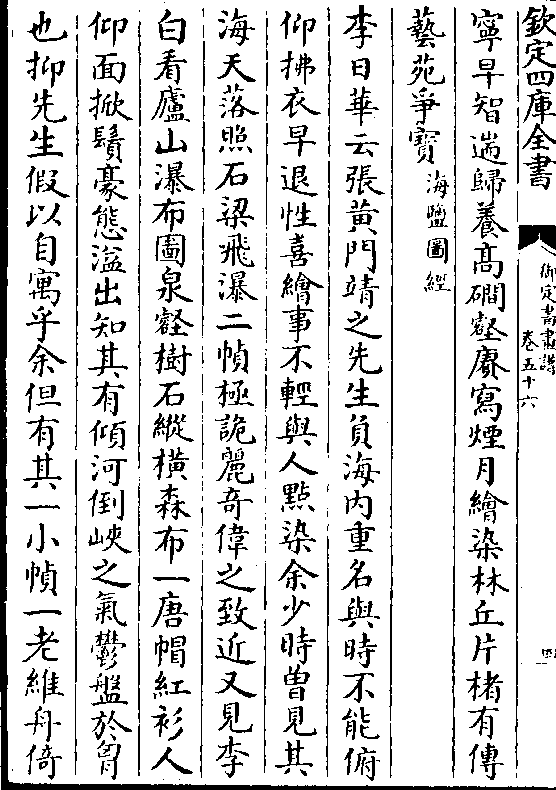 欽定四庫全書
御定書畫譜
卷五十六
寧早智遄歸養髙磵壑賡寫煙月繪染林丘片楮有傳
藝苑爭寶海鹽圖經
李日華云張黄門靖之先生負海内重名與時不能俯
仰拂衣早退性喜繪事不輕與人點染余少時曽見其
海天落照石梁飛瀑二幀極詭麗奇偉之致近又見李
白看廬山瀑布圖泉壑樹石縱横森布一唐帽紅衫人
仰面掀鬚豪態溢出知其有傾河倒峽之氣鬱盤於胷
也抑先生假以自寓乎余但有其一小幀一老維舟倚